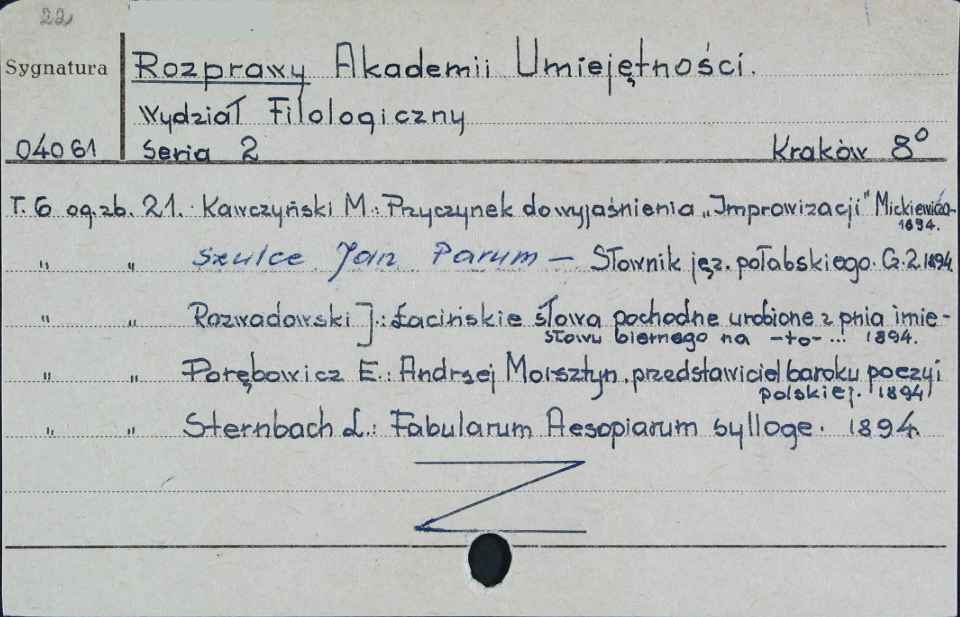 22,
Sygnatura
Rozprawy Akademii Umiejętności.
Wydział Filologiczny
04061 Seria 2 Kraków 8°
T. 6 og. zb. 21. Kawczyński M.: Przyczynek do wyjaśnienia „Improwizacji" Mickiewicza
1894.
" " Szulce Jan Parum – Słownik jęz. połabskiego. Cz. 2. 1894
" " Rozwadowski J.: Łacińskie słowa pochodne urobione z pnia imie-
słowu biernego na -to- ... 1894.
" " Porębowicz E.: Andrzej Morsztyn, przedstawiciel baroku poezyi
polskiej. 1894
" " Sternbach L.: Fabularum Aesopiarum sylloge. 1894.